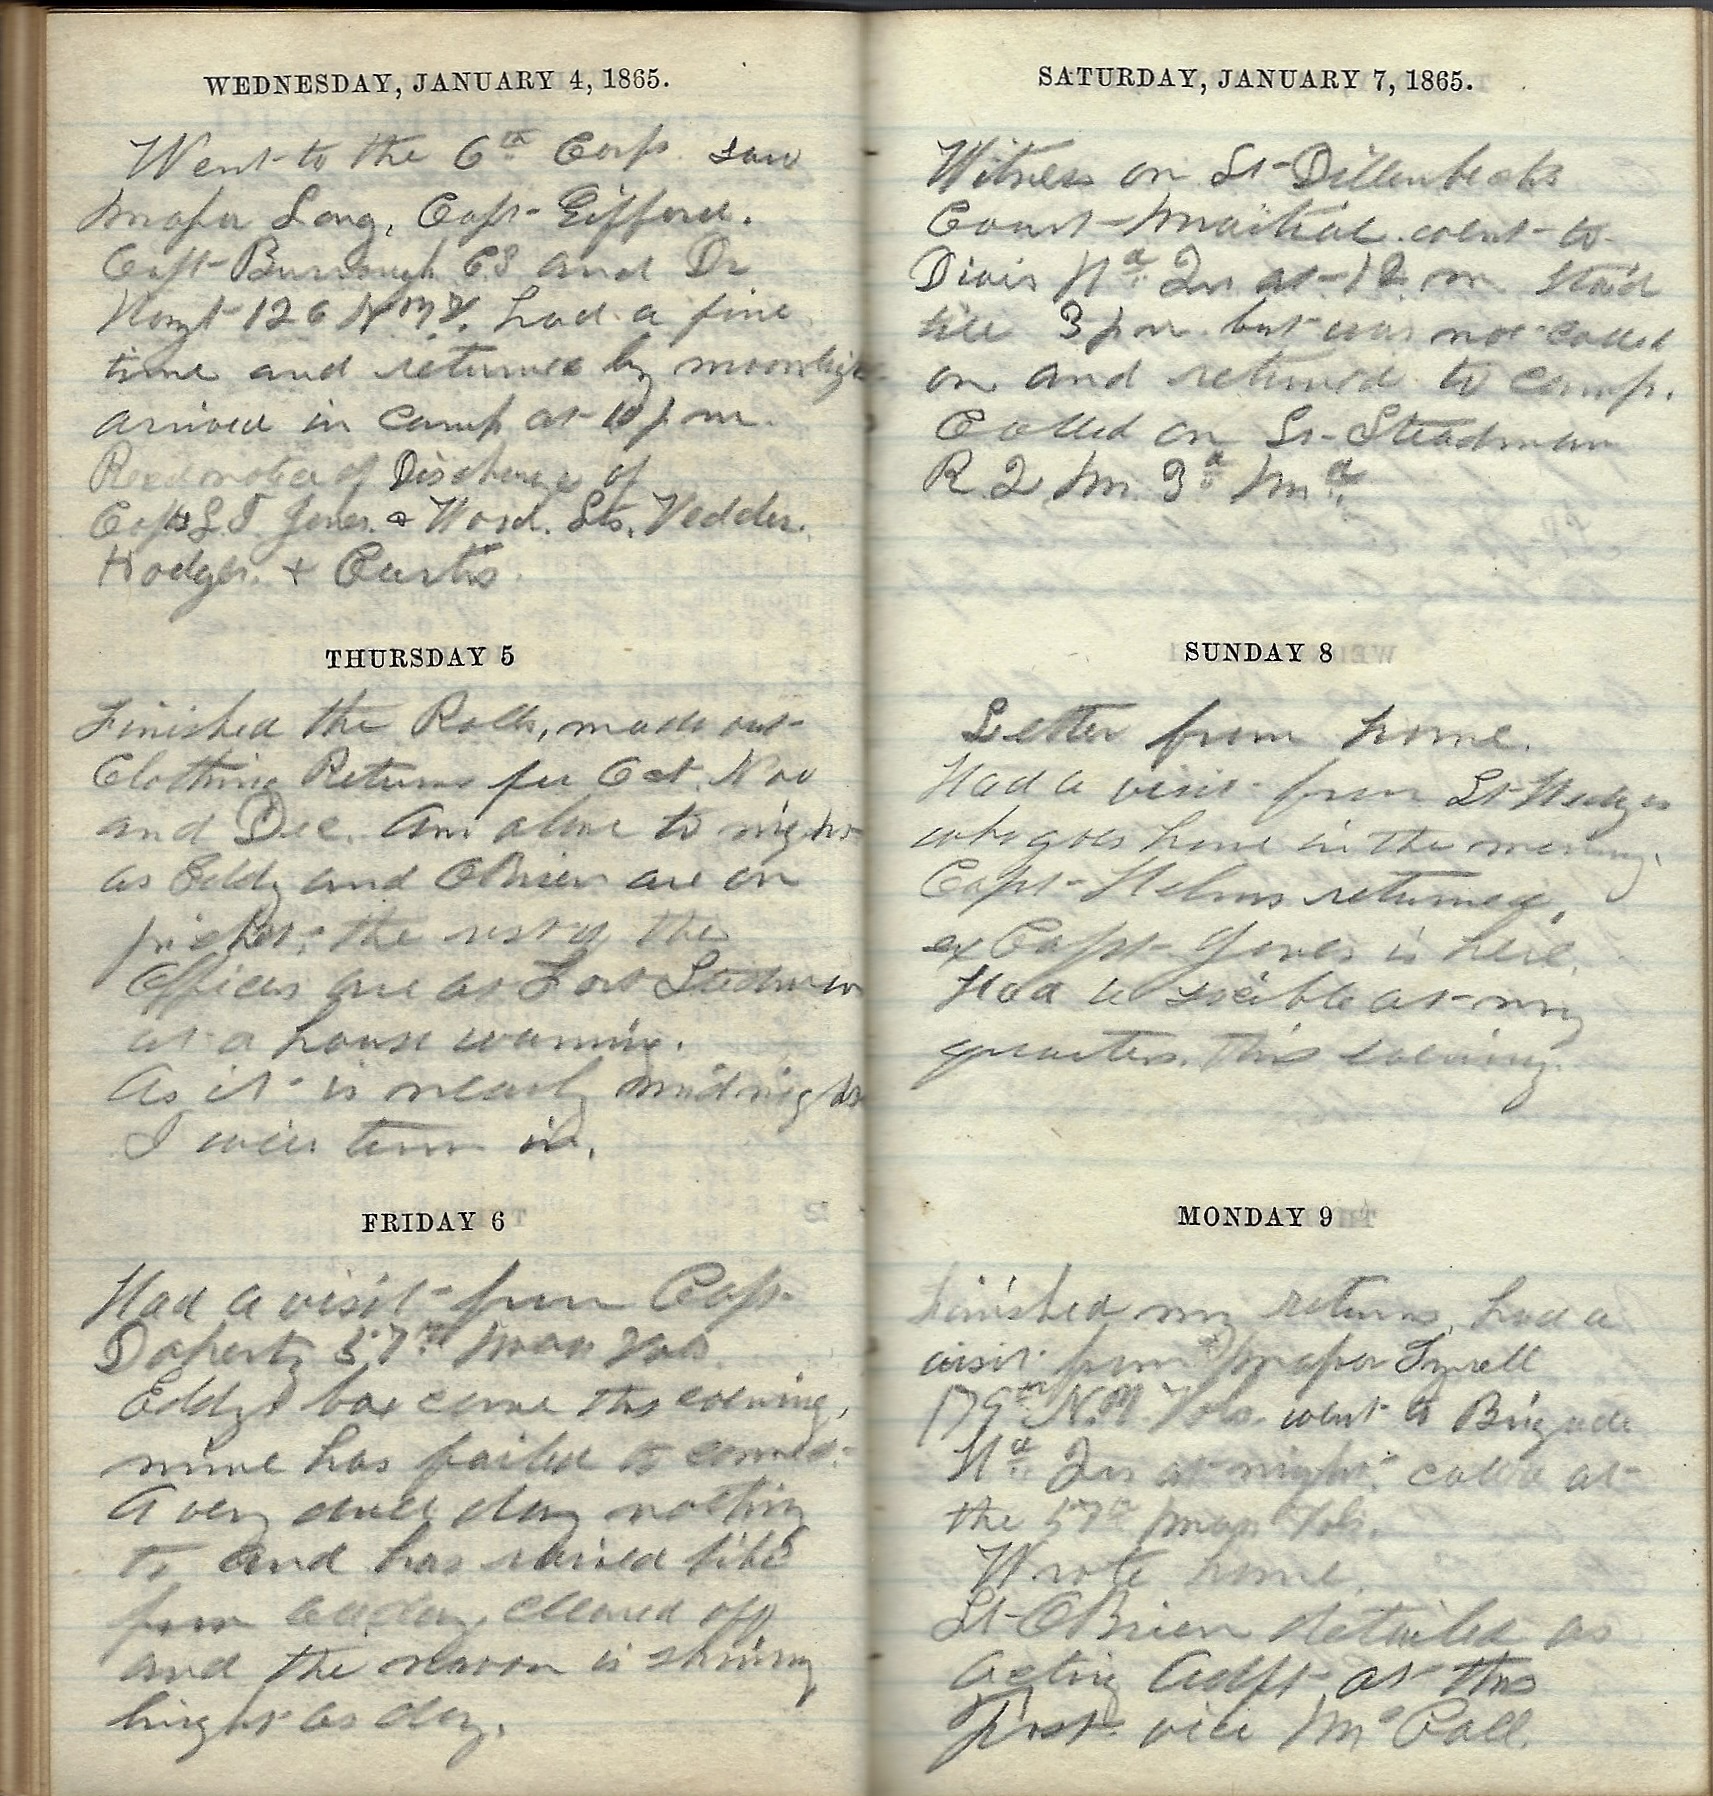 WEDNESDAY, JANUARY 4, 1865.
Went to the 6th Corps saw
Major Long, Capt Gifford.
Capt Burrough CS and Dr
Hoyt 126 NYV. had a fine
time and returned by moonligh
arrived in camp at 10 pm.
Recd notice of Discharge of
Capts L.T. Jones & Ward. Lts. Vedder.
Hodges. + Curtis.
THURSDAY 5
Finished the Rolls, made out
Clothing Returns for Oct. Nov
and Dec. Am alone to night
as Eddy and OBrien are on
picket. the rest of the
Officers are at Fort Stedman
at a house warming.
As it is nearly midnight
I will turn in.
FRIDAY 6
Had a visit from Capt
Doherty 57th Mass Vols
Eddys box come this evening,
mine has failed to come
A very dull day nothing
to and has rained like
all day, cleared off
and the moon is shining
bright as day.
SATURDAY, JANUARY 7, 1865.
Witness on Lt Dillenbecks
Court Martial. went to
Divis Hd Qrs at 12 m staid
till 3 pm but was not called
on and returned to camp.
Called on Lt Steadman
R 2 M 3d Md
SUNDAY 8
Letter from home.
Had a visit from Lt Hedges
who goes home in the morning.
Capt Helms returned.
ex Capt Jones is here.
Had a at my
quarters this evening.
MONDAY 9
Finished my returns, had a
visit from Major Tyrell
179th N.Y. Vols. went to Brigade
Hd Qrs at night. call'd at
the 57th Mass Vols.
Wrote home.
Lt OBrien detailed as
acting Adjt at this
Post vice McCall.